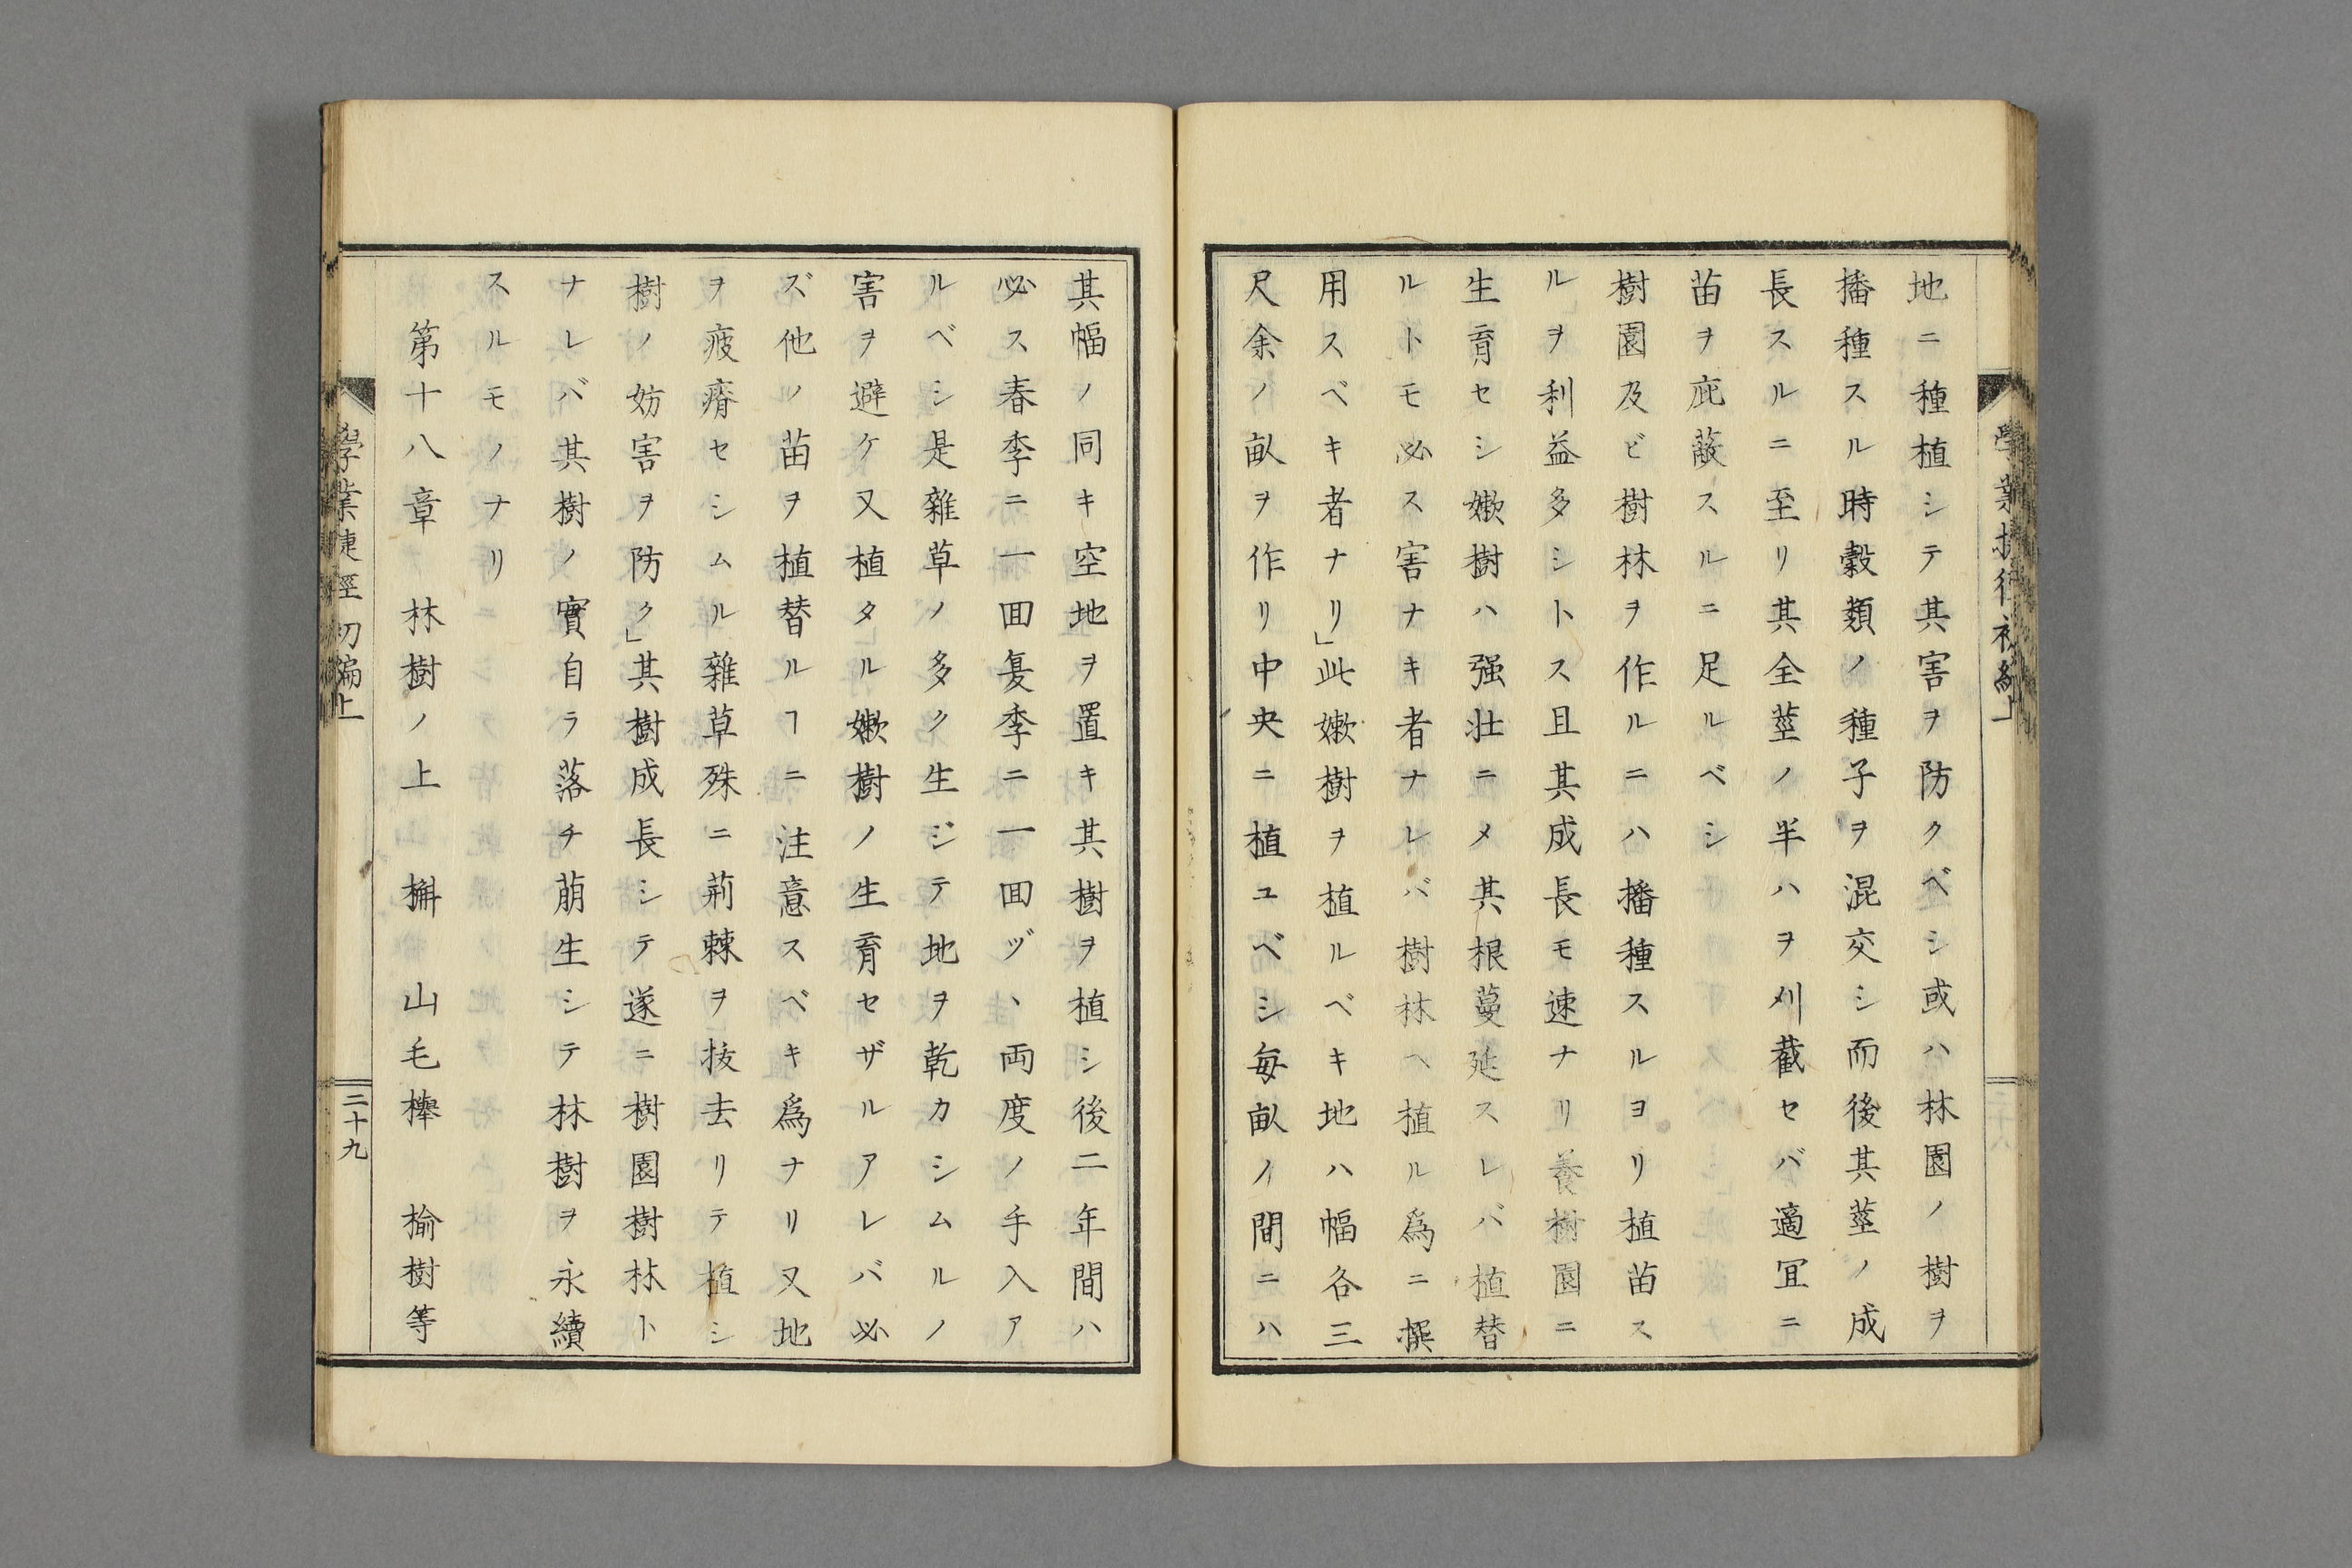 地ニ種植シテ其害ヲ防クベシ或ハ林園ノ樹ヲ
播種スル時穀類ノ種子ヲ混交シ而後其莖ノ成
長スルニ至リ其全莖ノ半ハヲ刈截セバ適冝ニ
苗ヲ庇蔽スルニ足ルベシ
樹園及ビ樹林ヲ作ルニハ播種スルヨリ植苗ス
ル」ヲ利益多シトス且其成長モ速ナリ養樹園ニ
生育セシ嫰樹ハ强壮ニメ其根蔓延スレバ植替
ルトモ必ス害ナキ者ナレバ樹林ヘ植ル爲ニ撰
用スベキ者ナリ」此嫰樹ヲ植ルベキ地ハ幅各三
尺余ノ畝ヲ作リ中央ニ植ユベシ毎畝ノ間ニハ
其幅ノ同キ空地ヲ置キ其樹ヲ植シ後二年間ハ
必ス春季ニ一囬夏季ニ一囬ヅヽ両度ノ手入ア
ルベシ是雜草ノ多ク生ジテ地ヲ乾カシムルノ
害ヲ避ケ又植タル嫰樹ノ生育セザルアレバ必
ズ他ノ苗ヲ植替ルヿニ注意スベキ爲ナリ又地
ヲ疲瘠セシムル雜草殊ニ荊棘ヲ抜去リテ植シ
樹ノ妨害ヲ防ク」其樹成長シテ遂ニ樹園樹林ト
ナレバ其樹ノ實自ラ落チ萠生シテ林樹ヲ永續
スルモノナリ
第十八章 林樹ノ上 槲 山毛櫸 楡樹等
學業捷徑初編上
二十九